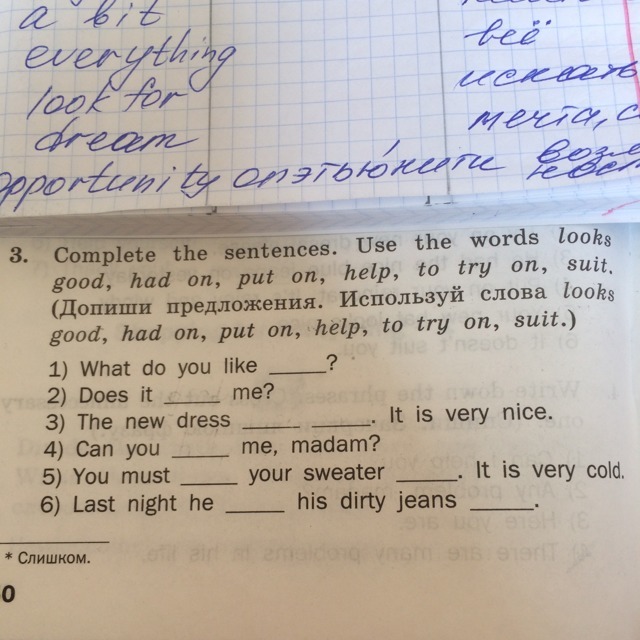 a bit
всё
everything
искать
look for
мечта,
dream
opportunity опэтью́нити
3. Complete the sentences. Use the words looks
good, had on, put on, help, to try on, suit.
(Допиши предложения. Используй слова looks
good, had on, put on, help, to try on, suit.)
1) What do you like _____?
2) Does it _____ me?
3) The new dress _____ _____. It is very nice.
4) Can you _____ me, madam?
5) You must _____ your sweater _____. It is very cold.
6) Last night he _____ his dirty jeans _____.
* Слишком.
0